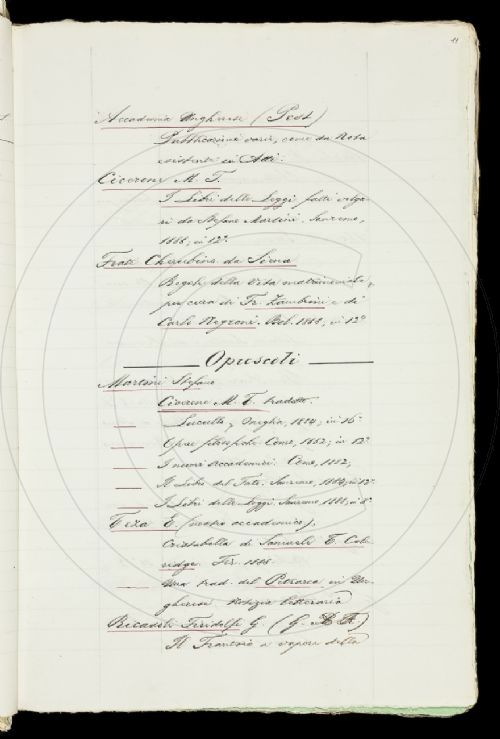 11
Accademia Ungherese (Pest)
Pubblicazioni varie, come da Nota
esistente in Atti.
Cicerone M. T.
I Libri delle Leggi fatti volga-
ri da Stefano Martini. Sanremo,
1888; in 12°
Frate Cherubino da Siena
Regole della Vita matrimoniale,
per cura di Fr. Zambrini e di
Carlo Negroni. Bol. 1888, in 12°
Opuscoli
Martini Stefano
Cicerone M. T. tradotto.
Lucullo, Oneglia, 1884; in 16°
Como, 1882; in 12°
I nuovi Accademici. Como, 1882,
Il Libro del Fato. Sanremo, 1884, in 12°
I Libri delle Leggi. Sanremo, 1888, in 8°
Teza E. (nostro accademico).
Cristabella di Samuele T. Cole-
ridge. Fir. 1888.
Una trad. del Petrarca in Un-
gherese notizia letteraria
Ricasoli Firidolfi G. (G.
Il Frantoio a vapore della